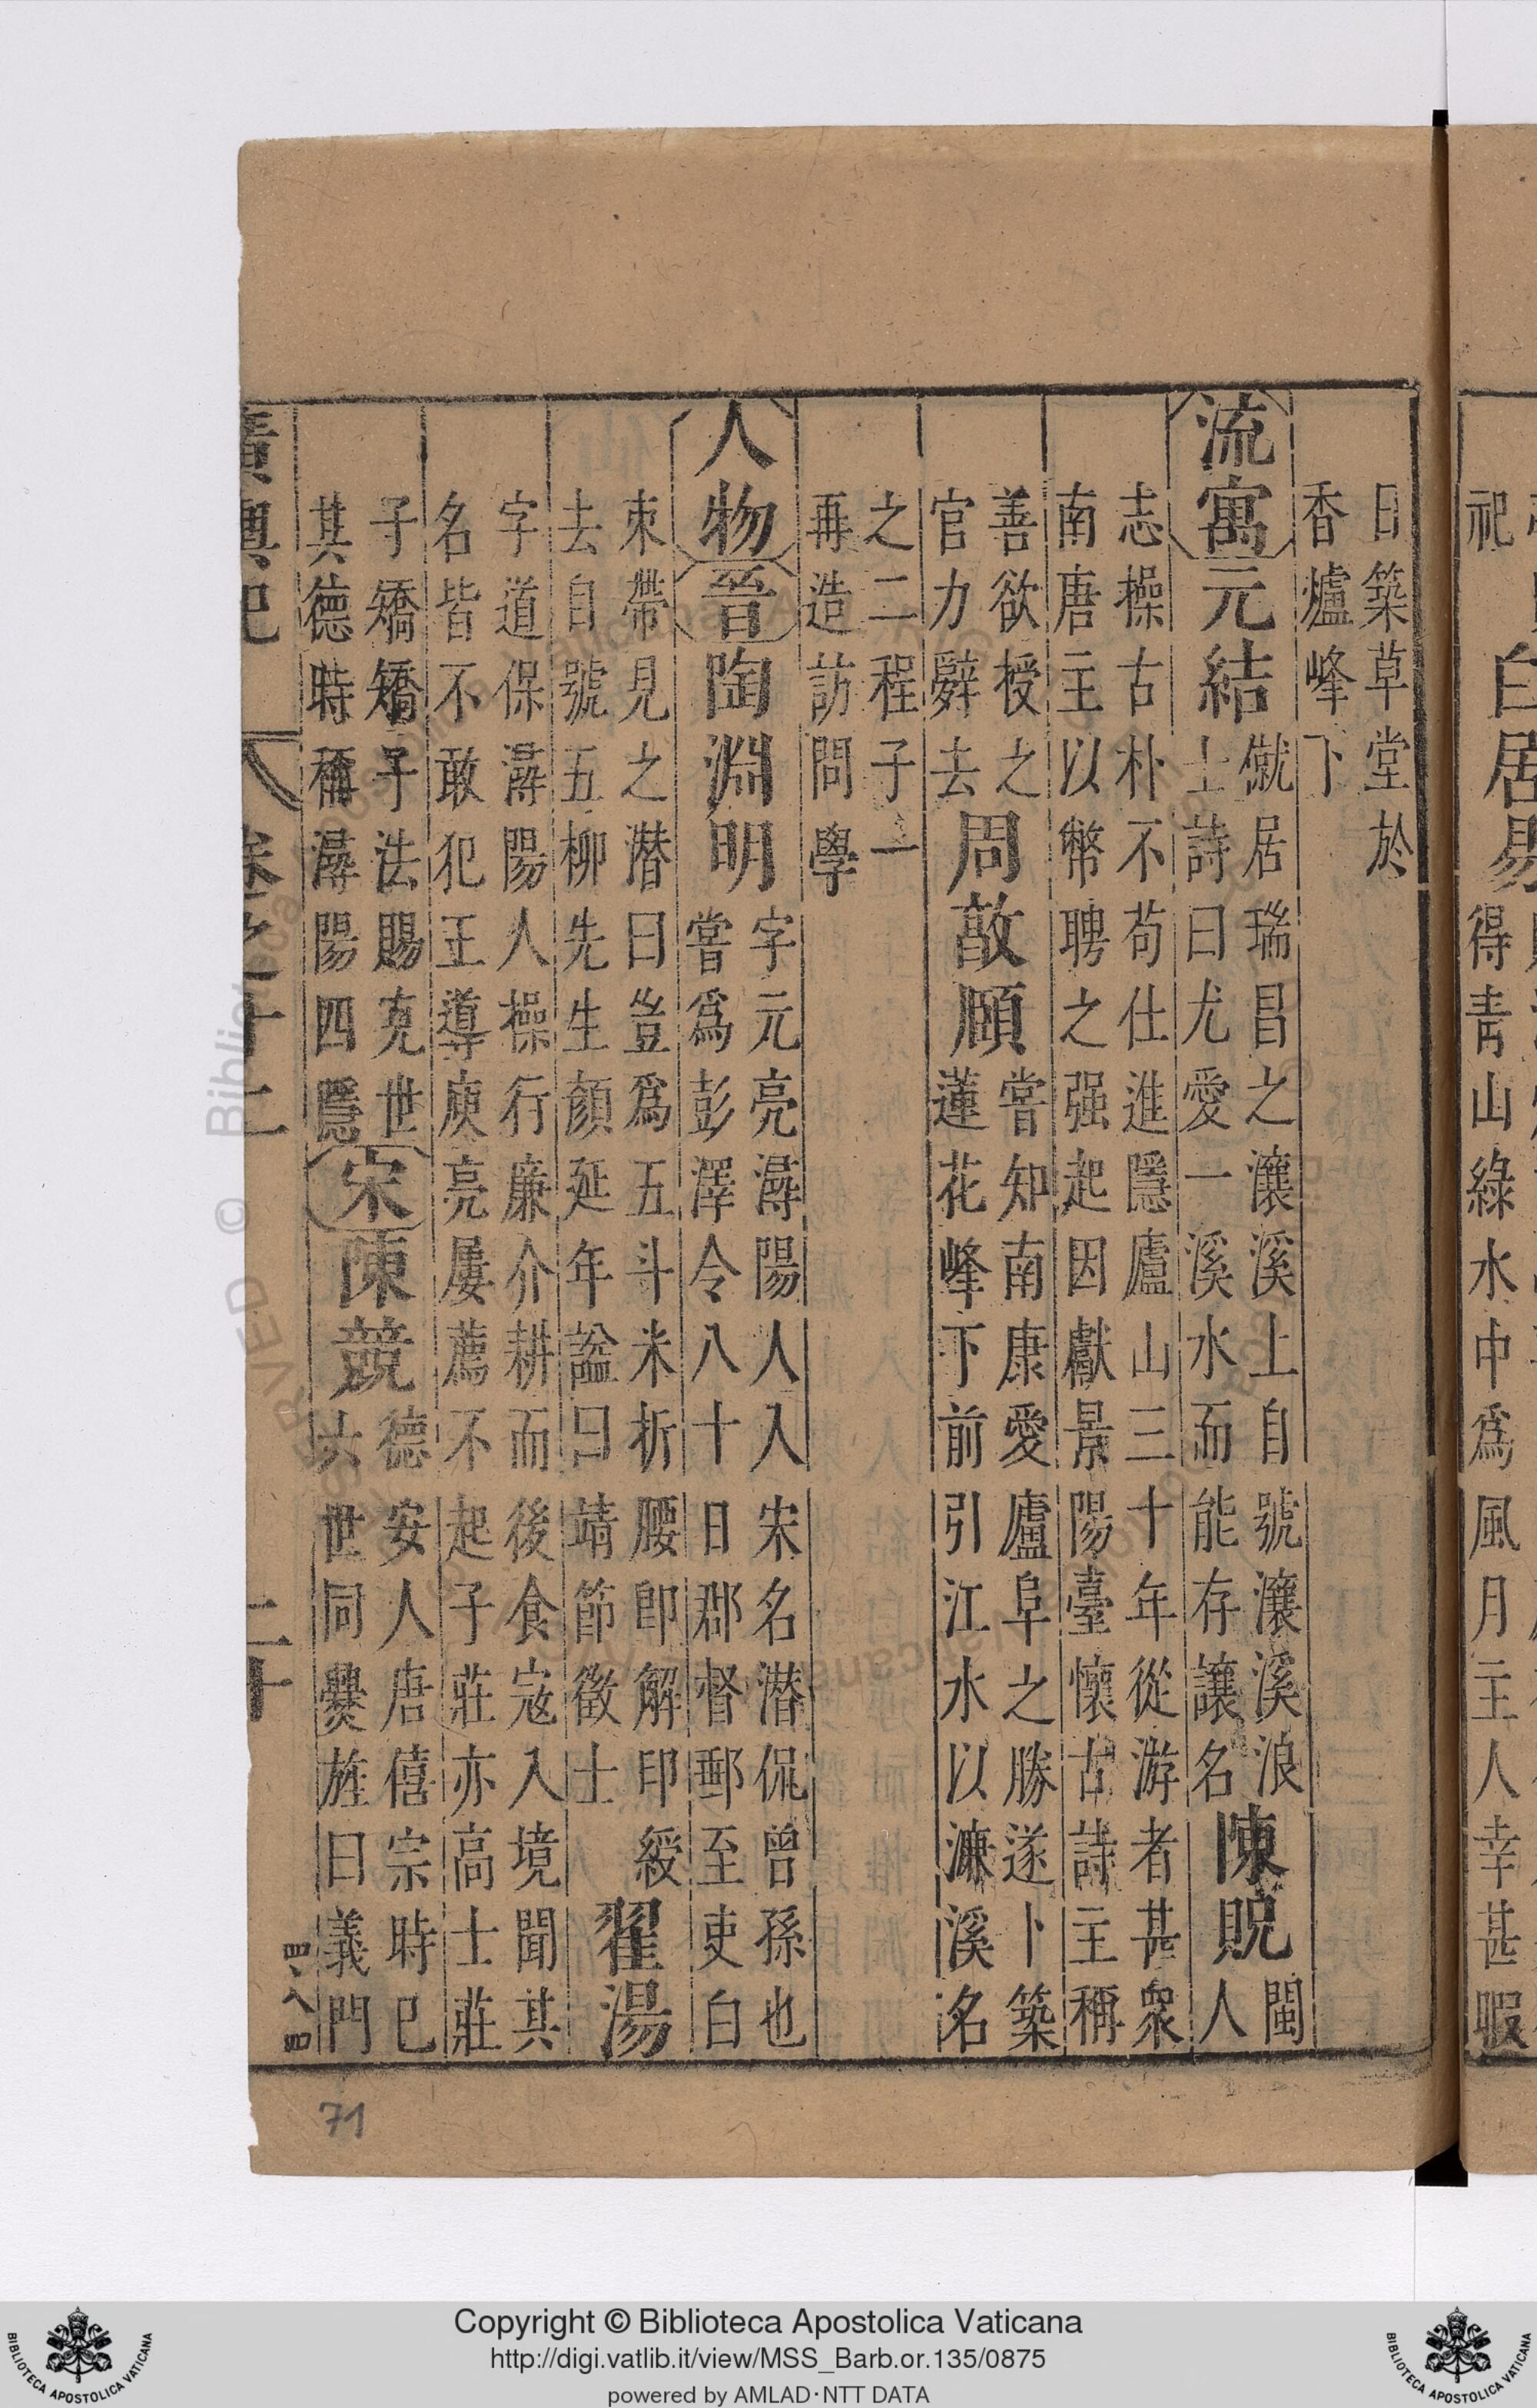 日築草堂於
香爐峰下
流寓元結
僦居瑞昌之瀼溪上自號瀼溪浪
士詩曰尤愛一溪水而能存讓名
陳貺
閩
人
志操古朴不苟仕進隱廬山三十年從游者甚衆
南唐主以幣聘之强起因獻景陽臺懷古詩主稱
善欲授之
官力辭去
周敦頤
嘗知南康愛廬阜之勝遂卜築
蓮花峰下前引江水以濂溪名
之二程子一
再造訪問學
人物晉陶淵明
字元亮潯陽人入宋名潛侃曾孫也
嘗爲彭澤令八十日郡督郵至吏白
束帶見之潛曰豈爲五斗米折腰卽解印綬
去自號五柳先生顏延年謚曰靖節徵士
翟湯
字道保潯陽人操行廉介耕而後食寇入境聞其
名皆不敢犯王導庾亮屢薦不起子莊亦高士莊
子矯矯子法賜克世
其德時稱潯陽四隱
宋陳競
德安人唐僖宗時已
六世同爨旌曰義門
廣輿記 卷之十二 二十
祀
白居易
得靑山綠水中爲風月主人幸甚暇
71
Copyright © Biblioteca Apostolica Vaticana
http://digi.vatlib.it/view/MSS_Barb.or.135/0875
powered by AMLAD·NTT DATA
BIBLIOTECA APOSTOLICA VATICANA
BIBLIOTECA APOSTOLICA VATICANA